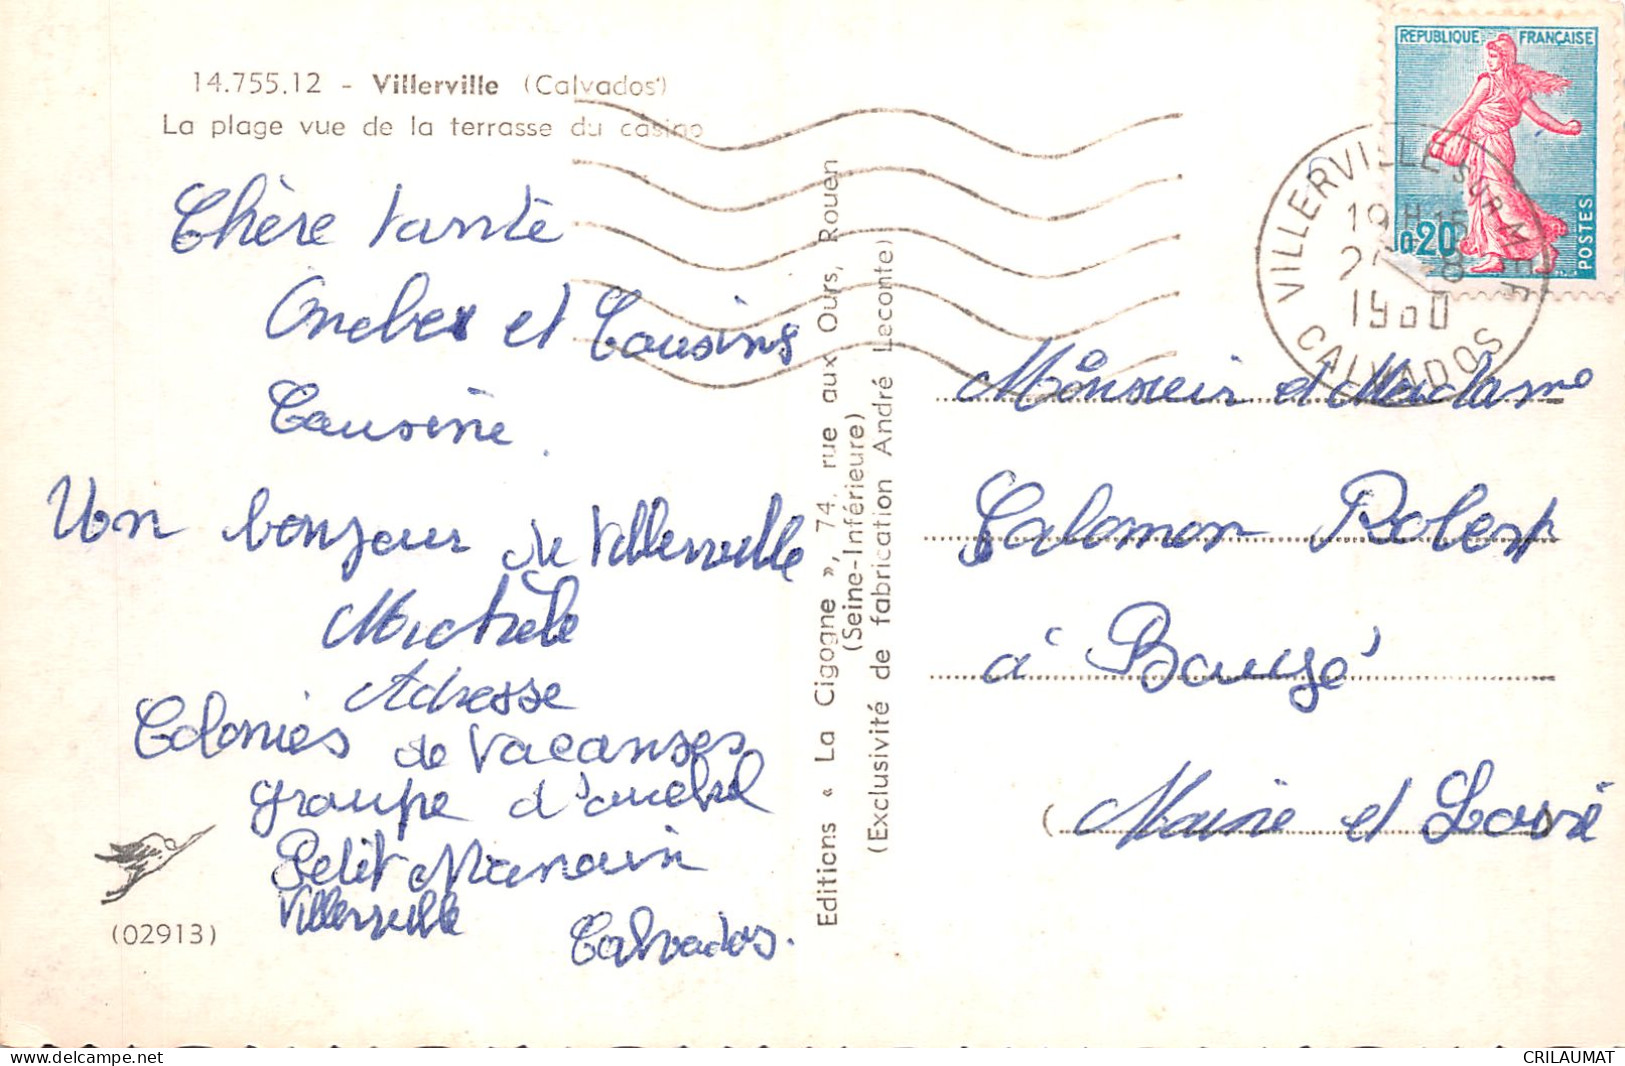 14.755.12 - Villerville (Calvados)
La plage vue de la terrasse du casino
Chère tante
Oncle et Cousins
Cousine.
Un bonjour de Villerville
Michèle
Adresse
Colonies de Vacanses
groupe d'
Petit Manoir
Villerville
Calvados.
(02913)
Editions « La Cigogne », 74, rue aux Ours, Rouen
(Seine-Inférieure)
(Exclusivité de fabrication André Leconte)
REPUBLIQUE FRANÇAISE
0,20
POSTES
VILLERVILLE SUR MER
19H15
8
1960
CALVADOS
Monsieur et Madame
Salomon Robert
à Baugé
(Maine et Loire)
CRILAUMAT
www.delcampe.net